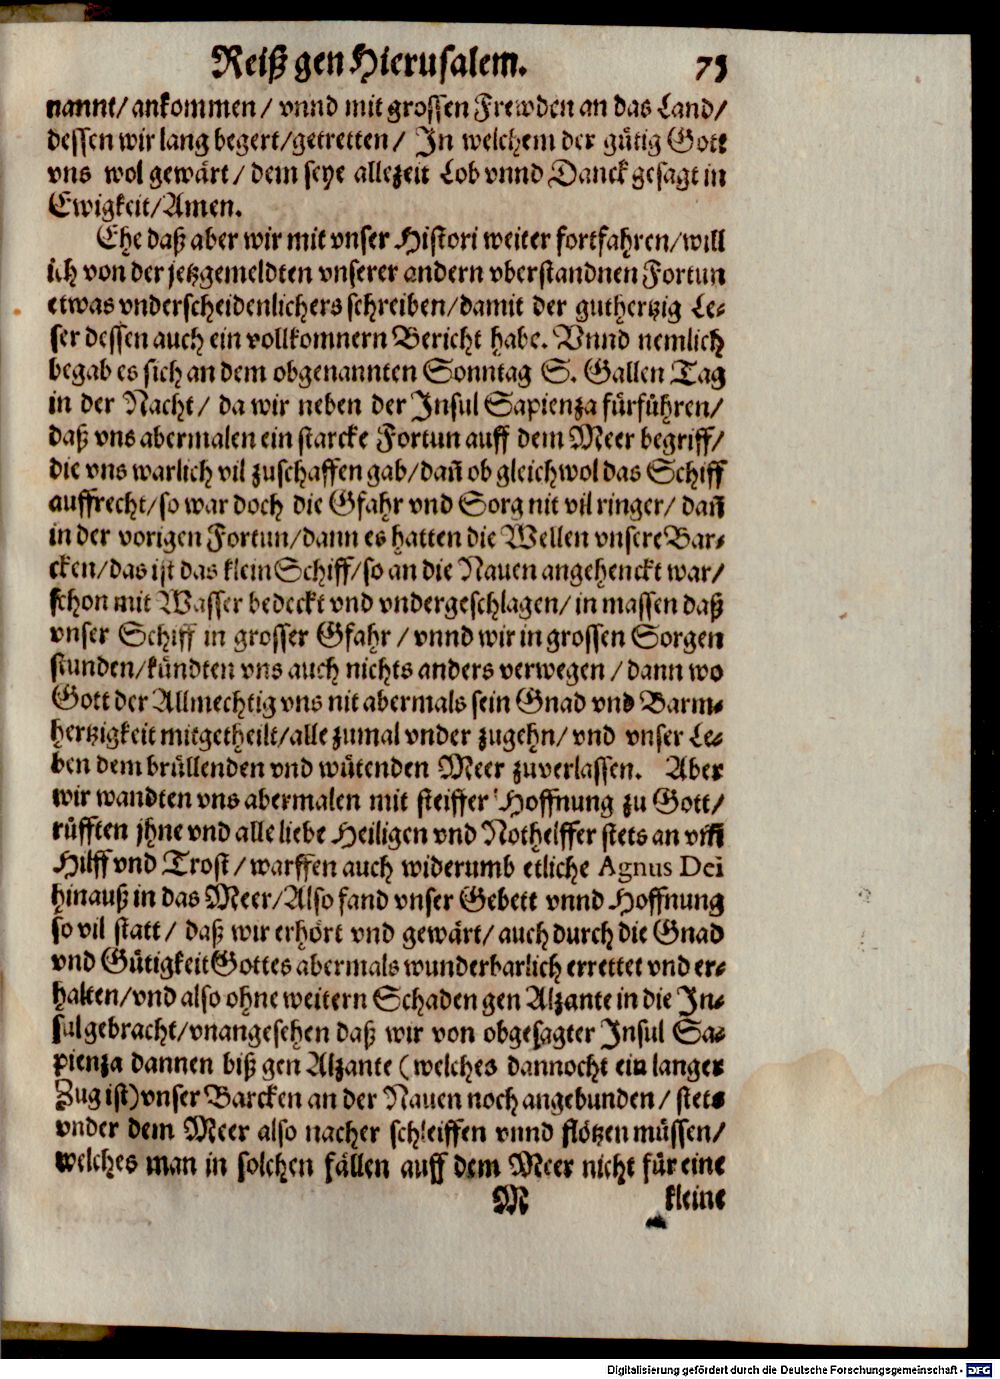 Reiß gen Hierusalem. 75
nannt/ ankommen/ vnnd mit grossen Frewden an das Land/
dessen wir lang begert/getretten/ In welchem der gütig Gott
vns wol gewärt/ dem seye allezeit Lob vnnd Danck gesagt in
Ewigkeit/Amen.
Ehe daß aber wir mit vnser Histori weiter fortfahren/will
ich von der jetzgemeldten vnserer andern vberstandnen Fortun
etwas vnderscheidenlichers schreiben/damit der guthertzig Le-
ser dessen auch ein vollkomnern Bericht habe. Vnnd nemlich
begab es sich an dem obgenannten Sonntag S. Gallen Tag
in der Nacht/ da wir neben der Insul Sapienza fürführen/
daß vns abermalen ein starcke Fortun auff dem Meer begriff/
die vns warlich vil zuschaffen gab/dañ ob gleichwol das Schiff
auffrecht/so war doch die Gfahr vnd Sorg nit vil ringer/ dañ
in der vorigen Fortun/dann es hatten die Wellen vnsere Bar-
cken/das ist das klein Schiff/so an die Nauen angehenckt war/
schon mit Wasser bedeckt vnd vndergeschlagen/in massen daß
vnser Schiff in grosser Gfahr/vnnd wir in grossen Sorgen
stunden/kündten vns auch nichts anders verwegen/dann wo
Gott der Allmechtig vns nit abermals sein Gnad vnd Barm-
hertzigkeit mitgetheilt/alle zumal vnder zugehn/vnd vnser Le-
ben dem brüllenden vnd wütenden Meer zuverlassen. Aber
wir wandten vns abermalen mit steiffer Hoffnung zu Gott/
rüfften jhne vnd alle liebe Heiligen vnd Nothelffer stets an vm̃
Hilff vnd Trost/warffen auch widerumb etliche Agnus Dei
hinauß in das Meer/Also fand vnser Gebett vnnd Hoffnung
so vil statt/ daß wir erhört vnd gewärt/auch durch die Gnad
vnd Gütigkeit Gottes abermals wunderbarlich errettet vnd er-
halten/vnd also ohne weitern Schaden gen Alzante in die In-
sul gebracht/vnangesehen daß wir von obgesagter Insul Sa-
pienza dannen biß gen Alzante (welches dannocht ein langer
Zug ist) vnser Barcken an der Nauen noch angebunden/ stets
vnder dem Meer also nacher schleiffen vnnd flötzen müssen/
welches man in solchen fällen auff dem Meer nicht für eine
M kleine
Digitalisierung gefördert durch die Deutsche Forschungsgemeinschaft - DFG